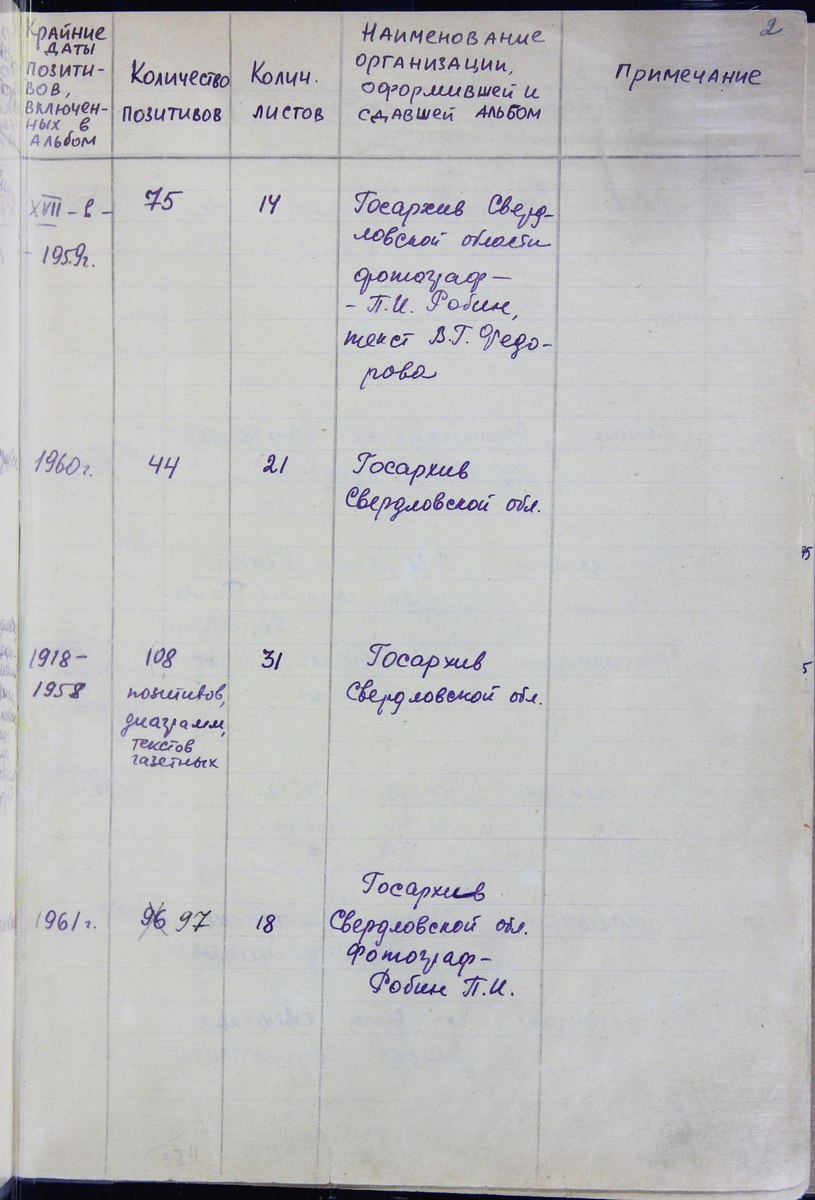 2
Крайние
даты
позити-
вов,
включен-
ных в
альбом
Количество
позитивов
Колич.
листов
Наименование
организации,
оформившей и
сдавшей альбом
Примечание
XVII - в -
- 1959г.
75
14
Госархив Сверд-
ловской области
фотограф -
- П.И. Робин,
текст В.Г. Федо-
рова
1960 г.
44
21
Госархив
Свердловской обл.
1918 -
1958
108
позитивов,
диаграмм,
текстов
газетных
31
Госархив
Свердловской обл.
1961 г.
96 97
18
Госархив
Свердловской обл.
Фотограф -
Робин П.И.